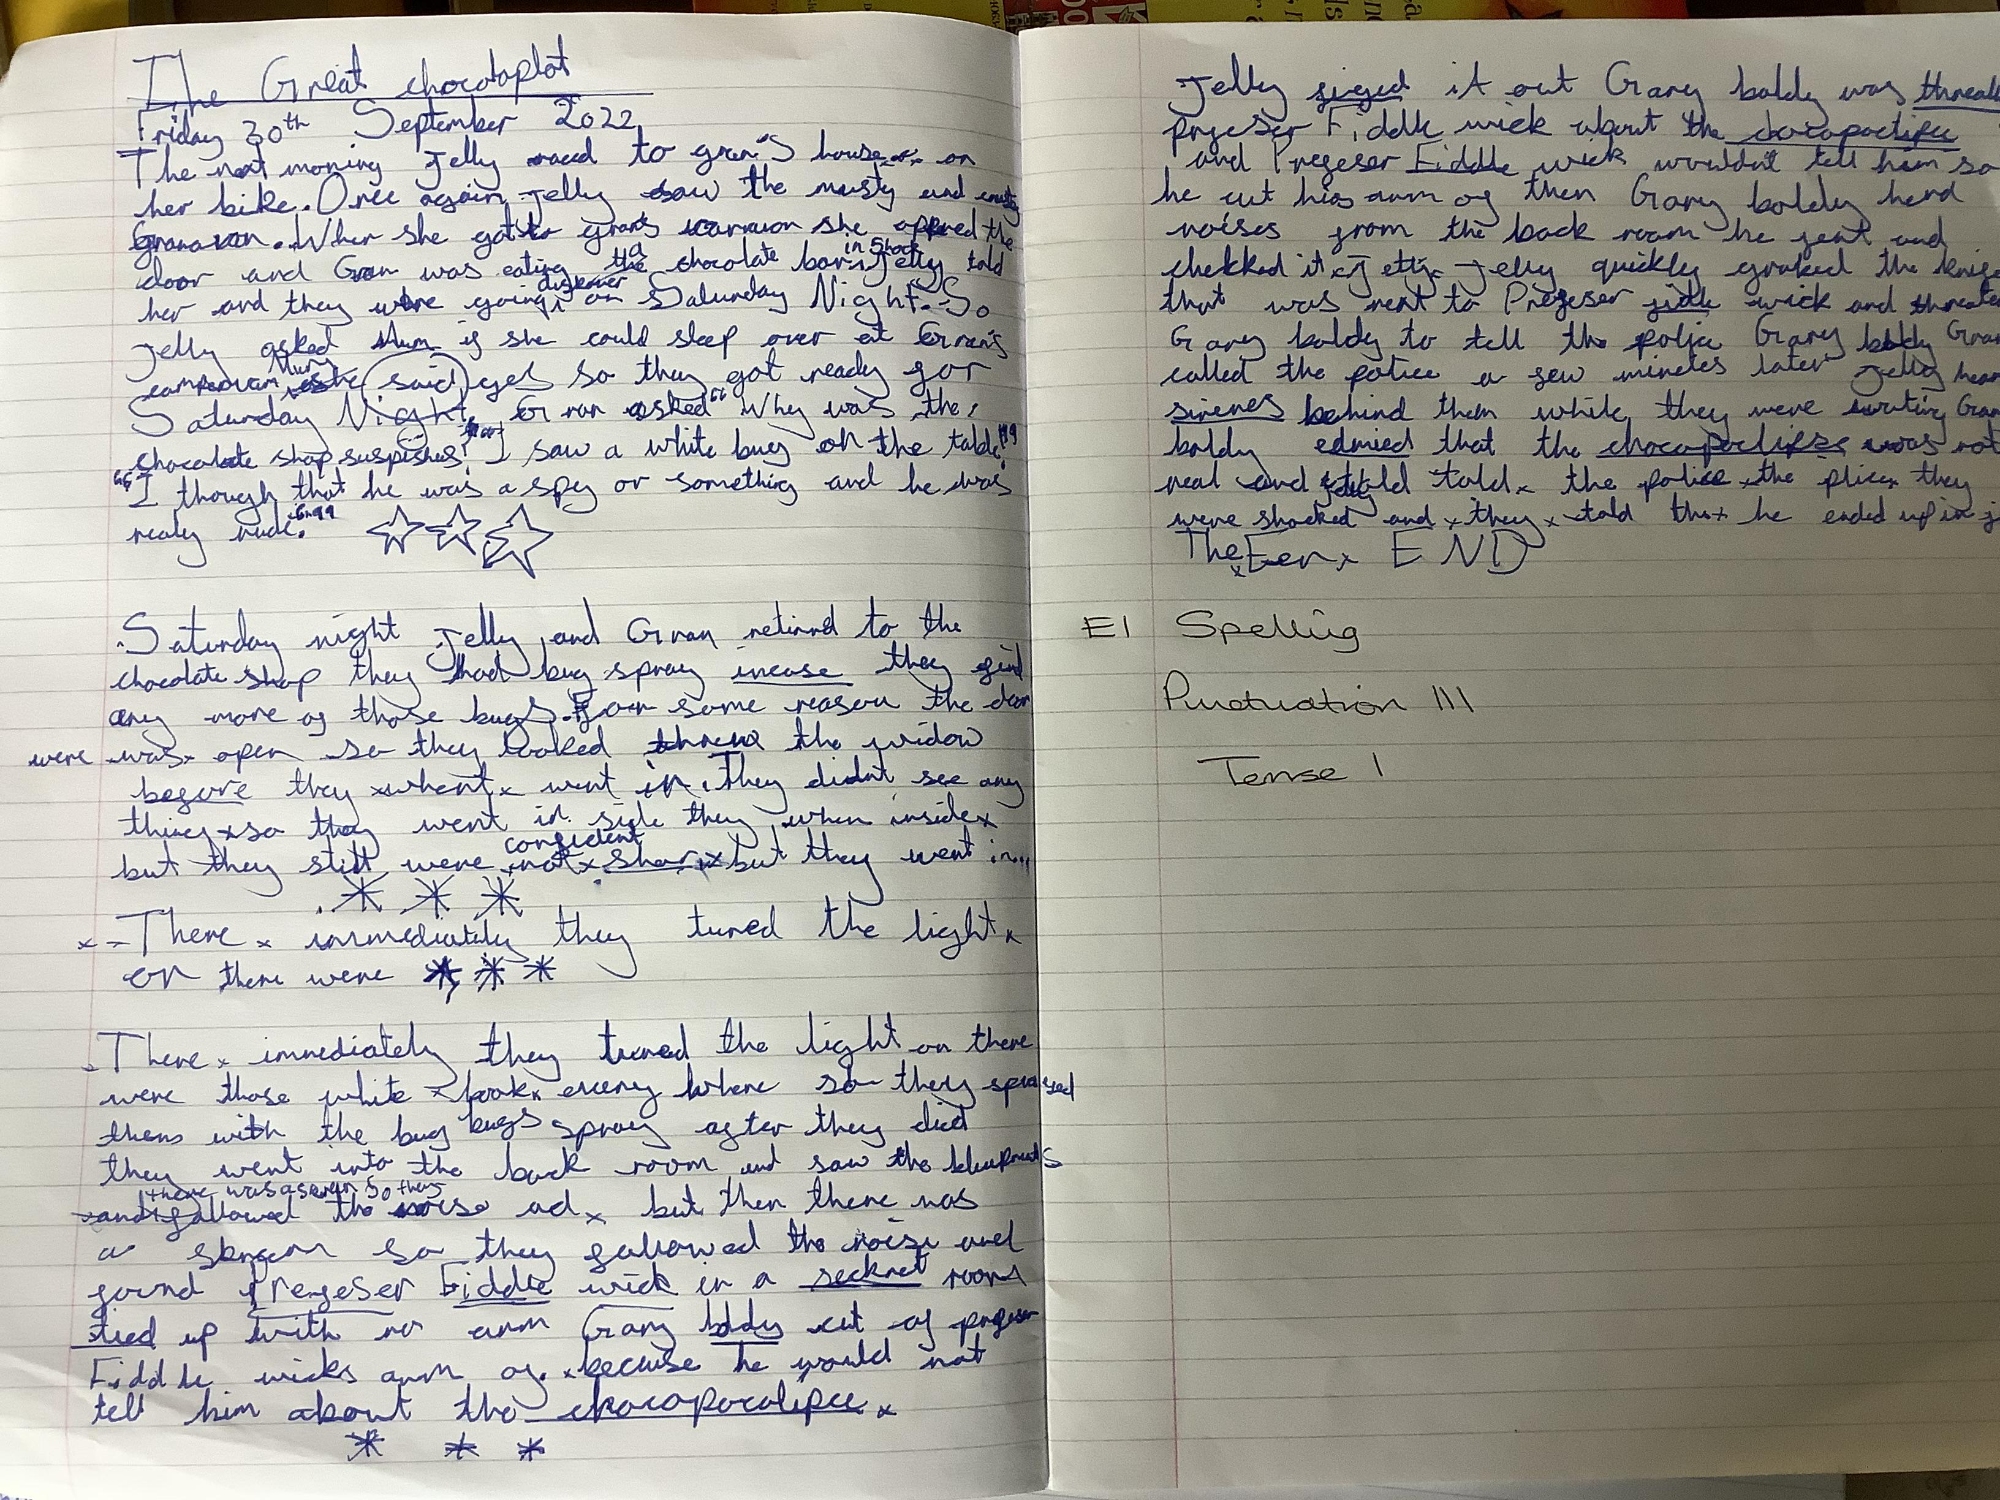 The Great chocoplot
Friday 30th September 2022
The next morning Jelly raced to gran's house on
her bike. Once again Jelly saw the musty and crusty
Granavan. When she got to grans carravon she oppened the
door and Gran was eating a chocolate bar in shock Jelly told
her and they were going discuver on Saturday Night. So
Jelly asked Mum if she could sleep over at Gran's
campervan Mum said yes so they got ready for
Saturday Night. Gran asked "Why was the
chocolate shop suspishes?" I saw a white bug on the table!"
"I though that he was a spy or something and he was
realy rude."
Saturday night Jelly and Gran retirnd to the
chocolate shop they had bug spray incase they find
any more of those bugs. For some reason the door
were was open so they looked threw the widow
before they whent went in. They didn't see any
thing so they went in side they when inside
but they still were not confident shor but they went in...
- There immediately they turned the light
on there were
There immediately they turned the light on there
were those white book eveny where so they sprayed
them with the bug bugs spray after they died
they went into the back room and saw the bluprints
there was a skream so they
and followed the noise ad but then there was
a skream so they followed the noise and
found Prefeser Fiddle wick in a seckret room
tied up with no arm Gary bldy cut of prefeser
Fiddle wicks arm of because he would not
tell him about the chocopocolipce
Jelly figed it out Gary boldy was
prfeser Fiddle wick about the chocopoclipce
and Prefeser Fiddle wick wouldn't tell him so
he cut his arm of then Gary boldy herd
noises from the back room he jent and
chekked it Jelly quickly grabed the knife
that was next to Prefeser fidle wick and
Gary boldy to tell the police Gary boldy Gran
called the police a few minetes later Jelly
sirenes behind them while they were waiting
boldy edmied that the chocopoclipse was not
real and told the police the plice they
were shocked and they told that he ended up in
The Een END
E1 Spelling
Puctuation III
Tense I